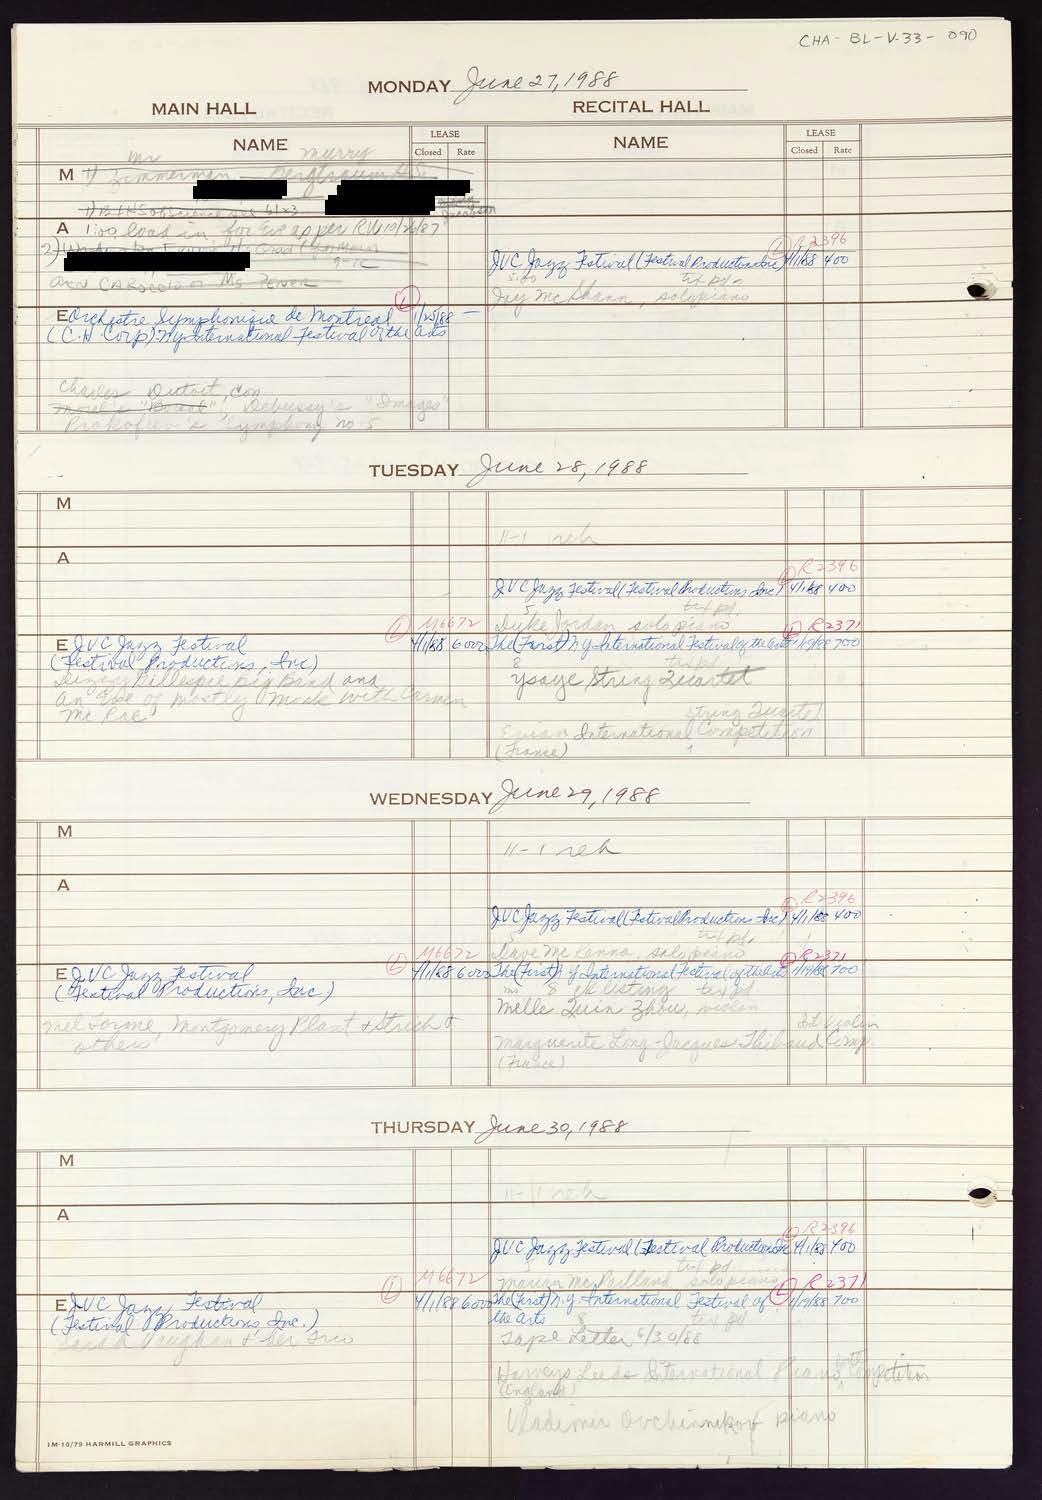 CHA-BL-V-33-090
MONDAY June 27, 1988
MAIN HALL
RECITAL HALL
NAME
LEASE
Closed Rate
NAME
LEASE
Closed Rate
Mr Murry
M 1) Zimmerman Bergtraum H.S.
A 1:00 load in for Eve as per RW 10/26/87
2)
R2396
JVC Jazz Festival (Festival Productions Inc) 4/1/88 400
5:00 txt pd
Jay McShann, solo piano
E Orchestre Symphonique de Montreal 1/25/88 —
(C.H Corp) NY International Festival of the Arts
Charles Dutoit, Con
"Images"
Debussy's
Prokofiev's Symphony no 5
TUESDAY June 28, 1988
M
11-1 reh
A
R2396
JVC Jazz Festival (Festival Productions Inc) 4/1/88 400
5 txt pd.
Duke Jordan solo piano
M6672
R2371
E JVC Jazz Festival 4/1/88 6000
(Festival Productions, Inc)
The (First) N.Y. International Festival of the Arts 1/19/88 700
8 txt pd
Dizzy Gillespie Big Band and
An Eve of Mostly Monk with Carmen
Mc Rae
Ysaye String Quartet
String Quartet
Evian International Competition
(France)
WEDNESDAY June 29, 1988
M
11-1 reh
A
R2396
JVC Jazz Festival (Festival Productions Inc) 4/1/88 400
5 txt pd.
Dave McKenna, solo piano
M6672
R2371
E JVC Jazz Festival 4/1/88 6000
(Festival Productions, Inc.)
The (First) N.Y. International Festival of the Arts 1/19/88 700
no 8 listing txt pd
Melle Quin Zhou, violin
Mel Torme, Montgomery Plant & Stritch &
others
Violin
Marguerite Long-Jacques Thibaud Comp.
(France)
THURSDAY June 30, 1988
M
11-1 reh
A
R2396
JVC Jazz Festival (Festival Productions Inc 4/1/88 400
5 txt pd
Marian McPartland solo piano
M6672
R2371
E JVC Jazz Festival 4/1/88 6000
(Festival Productions Inc.)
The (First) N.Y. International Festival of 1/19/88 700
the Arts 8 txt pd
Sarah Vaughan & her Trio
Tape Letter 6/30/88
Harveys Leeds International Piano Competition
(England)
Vladimir Ovchinnikov piano
1M-10/79 HARMILL GRAPHICS